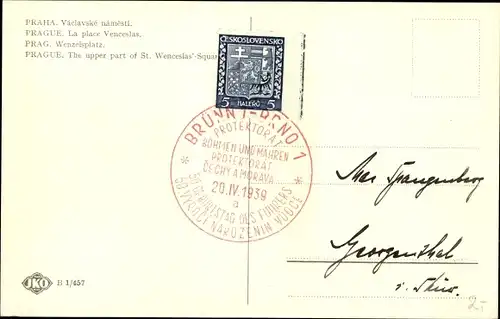 PRAHA. Václavské náměstí.
PRAGUE. La place Venceslas.
PRAG. Wenzelsplatz.
PRAGUE. The upper part of St. Wenceslas'-Squar
ČESKOSLOVENSKO
5 HALÉŘŮ 5
BRÜNN 1 - BRNO 1
PROTEKTORAT
BÖHMEN UND MÄHREN
PROTEKTORÁT
ČECHY A MORAVA
* 20.IV.1939 *
a
50. GEBURTSTAG DES FÜHRERS
50. VÝROČÍ NAROZENIN VŮDCE
Max Spangenberg
Georgenthal
i. Thür.
B 1/457
2.-